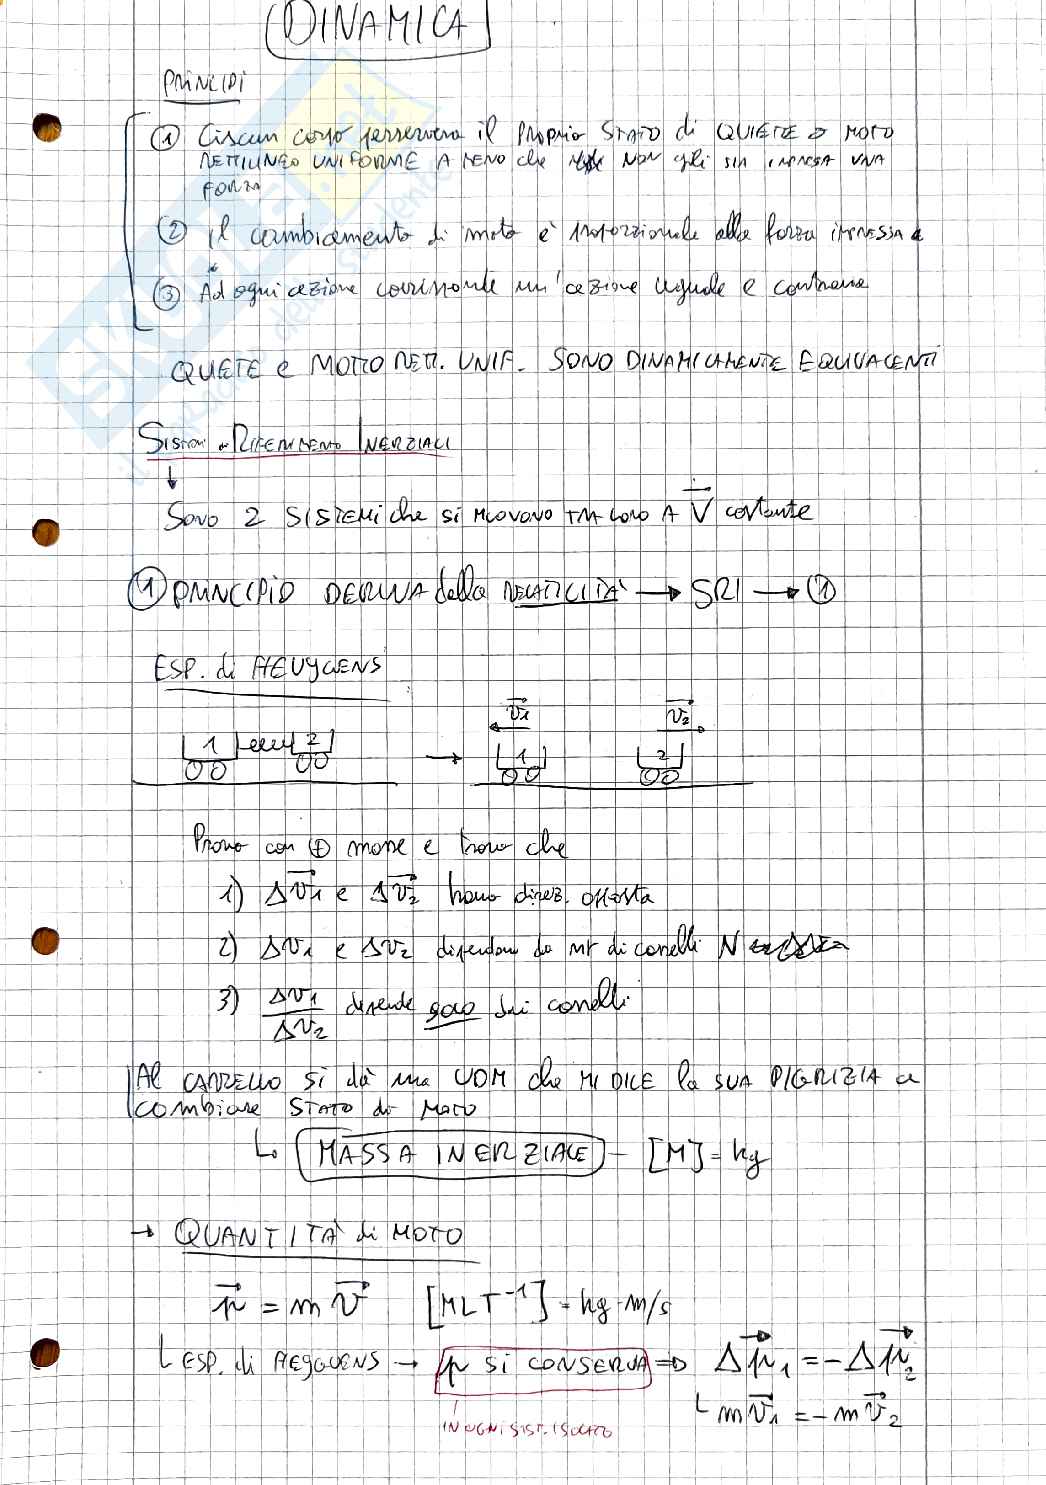 DINAMICA
PRINCIPI
① Ciscun corpo persevera il PROPRIO STATO di QUIETE o MOTO
RETTILINEO UNIFORME A MENO che NON gli SIA IMPRESSA UNA
FORZA
② Il cambiamento di moto è proporzionale alla forza IMPRESSA
③ Ad ogni azione corrisponde un'azione uguale e contraria
QUIETE e MOTO RETT. UNIF. SONO DINAMICAMENTE EQUIVALENTI
SISTEMI RIFERIMENTO INERZIALI
↓
SONO 2 SISTEMI che si MUOVONO TRA LORO A V costante
① PRINCIPIO DERIVA della RELATIVITÀ → SRI → ①
ESP. di HEUYGENS
v1 v2
1 2 → 1 2
Provo con ⊕ masse e trovo che
1) Δv1 e Δv2 hanno direz. opposta
2) Δv1 e Δv2 dipendono da nr di carrelli N
3) Δv1/Δv2 dipende solo dai carrelli
Al CARRELLO si dà una UDM che MI DICE la SUA PIGRIZIA a
cambiare STATO di MOTO
↳ MASSA INERZIALE - [M] = kg
→ QUANTITÀ di MOTO
p = m v [MLT⁻¹] = kg·m/s
ESP. di → p SI CONSERVA ⇒ Δp1 = -Δp2
IN OGNI SIST. ISOLATO
m v1 = -m v2
il